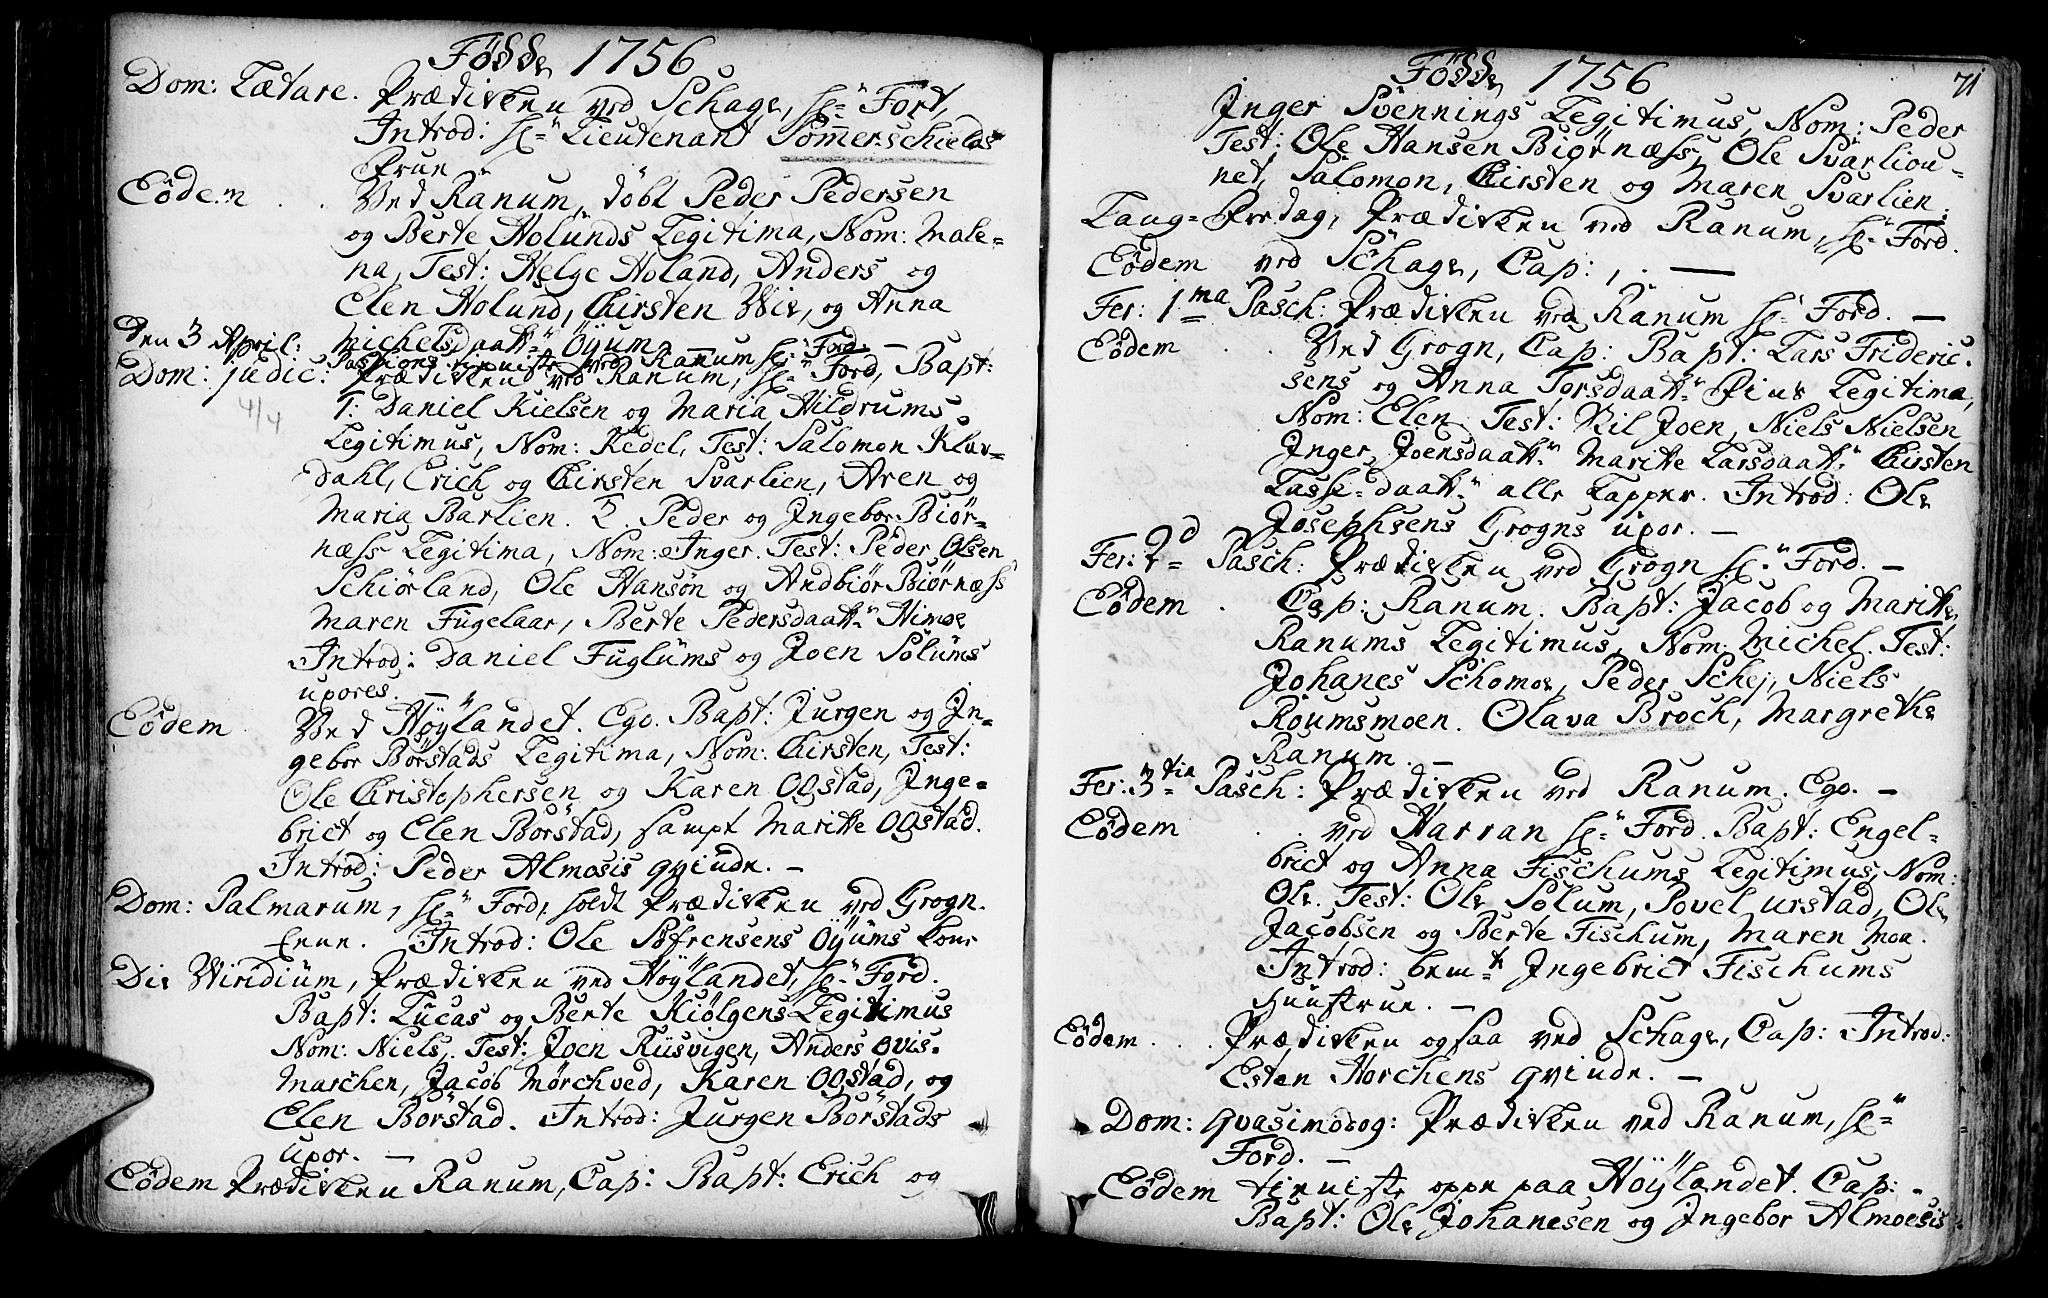 Fødde 1756
Dom: Lætare. Prædicken ved Schage, hr Ford,
Introd: hr Lieutenant Sommerschields
Frue
Eodem . . Ved Ranum, døbt Peder Pedersen
og Berte Holunds Legitima, Nom: Male-
na, Test: Helge Holand, Anders og
Elen Holund, Chirsten Wie, og Anna
Michelsdaatt: Öÿum. —
den 3 April: Passions tienniste ved Ranum hr Ford. —
Dom: judic: Prædicken ved Ranum, hr Ford, Bapt:
4/4
1. Daniel Kielsen og Maria Hildrums
Legitimus, Nom: Redel, Test: Salomon Klæv-
dahl, Erich og Chirsten Svarlien, Aren og
Maria Barlien. 2. Peder og Ingebor Biør-
næss Legitima, Nom: Inger. Test: Peder Olsen
Schiørland, Ole Hansøn og Andbiør Biørnæss
Maren Fugelaar, Berte Pedersdaatt: Himoe
Introd: Daniel Fuglums og Joen Solums
uxores. —
Eodem . Ved Høÿlandet. Ego. Bapt: Jurgen og In-
gebor Børstads Legitima, Nom: Chirsten, Test:
Ole Christophersen og Karen Ogstad, Inge-
brict og Elen Børstad, sampt Maritte Ogstad.
Introd: Peder Almosis qvinde. —
Dom: Palmarum, hr Ford, holdt Prædicken ved Grogn.
Introd: Ole SØfrensens Öÿums kone
Die Viridium, Prædicken ved Høÿlandet, hr Ford.
Bapt: Lucas og Berte Kiølgens Legitimus
Nom: Niels, Test: Joen Rusvigen, Anders Ovis-
marchen, Jacob Mørchved, Karen Ogstad, og
Elen Børstad. Introd: Jurgen Børstads
uxor. —
Eodem Prædicken Ranum, Cap: Bapt: Erich og
Fødde 1756
71
Inger Svennings Legitimus, Nom: Peder
Test: Ole Hansen Biørnæss, Ole Svarliou-
net, Salomon, Chirsten og Maren Svarlien:
Lang-Fredag, Prædicken ved Ranum, hr Ford.
Eodem ved Schage, Cap:, . —
Fer: 1ma Pasch: Prædicken ved Ranum hr Ford. —
Eodem . . Ved Grogn, Cap: Bapt: Lars Frideric-
sens og Anna Torsdaatt: Pius Legitima,
Nom: Elen Test: Kil Joen, Niels Nielsen
Inger Joensdaatt: Maritte Larsdaatt: Chirsten
Lasse-daatt: alle Lapper. Introd: Ole
Josephsens Grogns uxor. —
Fer: 2d Pasch: Prædicken ved Grogn hr Ford. —
Eodem . Cap: Ranum. Bapt: Jacob og Maritte
Ranums Legitimus, Nom: Michel. Test:
Johanes Schomoe, Peder Schej, Niels
Roumsmoen. Olava Broch, Margrethe
Ranum. —
Fer: 3tia Pasch: Prædicken ved Ranum. Ego. —
Eodem . . ved Harran hr Ford. Bapt: Engel-
brict og Anna Fischums Legitimus, Nom:
Ole. Test: Ole Solum, Povel urstad, Ole
Jacobsen og Berte Fischum, Maren Moa.
Introd: bemte Ingebrict Fischums
Huustrue. —
Eodem . . . Prædicken ogsaa ved Schage, Cap: Introd:
Esten Horchens qvinde. —
Dom: Qvasimodog: Prædicken ved Ranum, hr
Ford. —
Eodem tieniste oppe paa Høÿlandet. Cap: -
Bapt: Ole Johanesen og Ingebor Almoesis